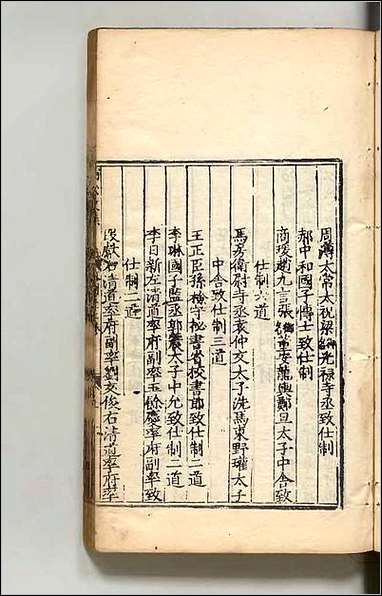 周溥太常太祝梁綯光祿寺丞致仕制
郝中和國子博士致仕制
商瑗趙九言張綯董安龍輿鄭旦太子中舍致
仕制六道
馬房衛尉寺丞袁仲文太子洗馬東野瓘太子
中舍致仕制三道
王正臣孫檢守祕書省校書郎致仕制二道
李琳國子監丞郭震太子中允致仕制二道
李日新左清道率府副率王餘慶率府副率致
仕制二道
獻和清道率府副率劉文俊右清道率府率